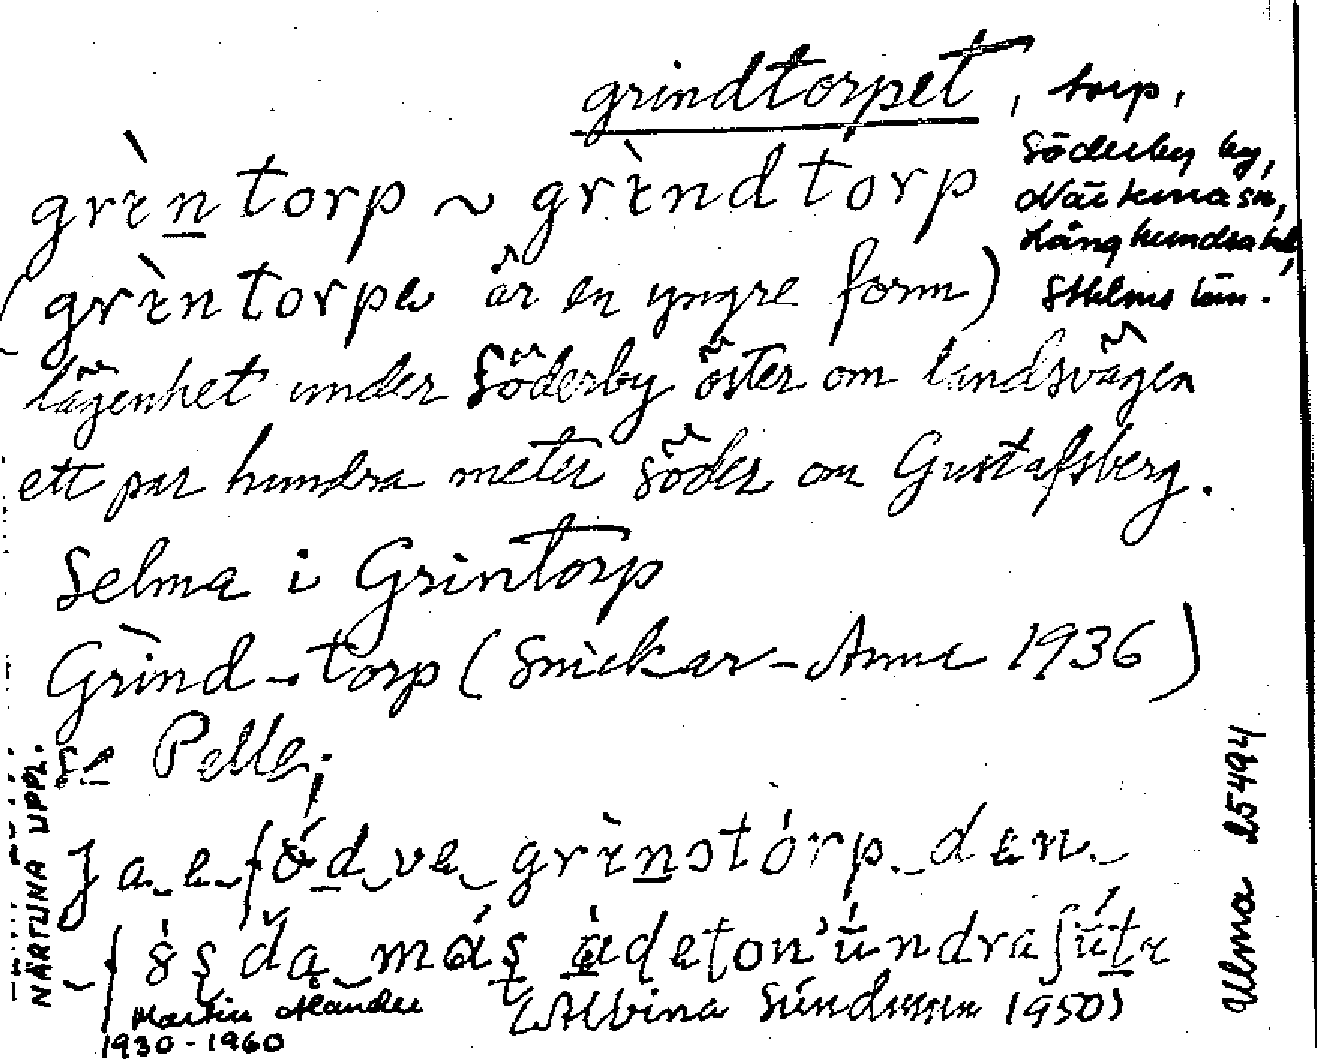 grindtorpet, torp,
Söderby by,
Närtuna sn,
Långhundra hd,
Sthlms län.
grìntorp ~ grìndtorp
(grìntorpe är en yngre form)
lägenhet under Söderby öster om landsvägen
ett par hundra meter söder om Gustafsberg.
Selma i Grintorp
Grìnd-torp (Snickar-Anna 1936)
se Pelle;
Ja e född ve grinstorp den
(Albina Sundman 1950)
Martin
1930-1960
NÄRTUNA UPPL.
Ulma 25494